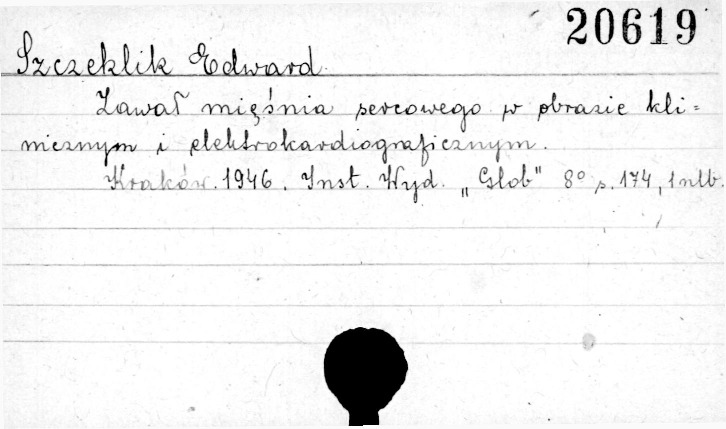 20619
Szczeklik Edward
Zawał mięśnia sercowego w obrazie kli=
nicznym i elektrokardiograficznym.
Kraków. 1946. Inst. Wyd. „Glob" 8° s. 174, 1 nlb.